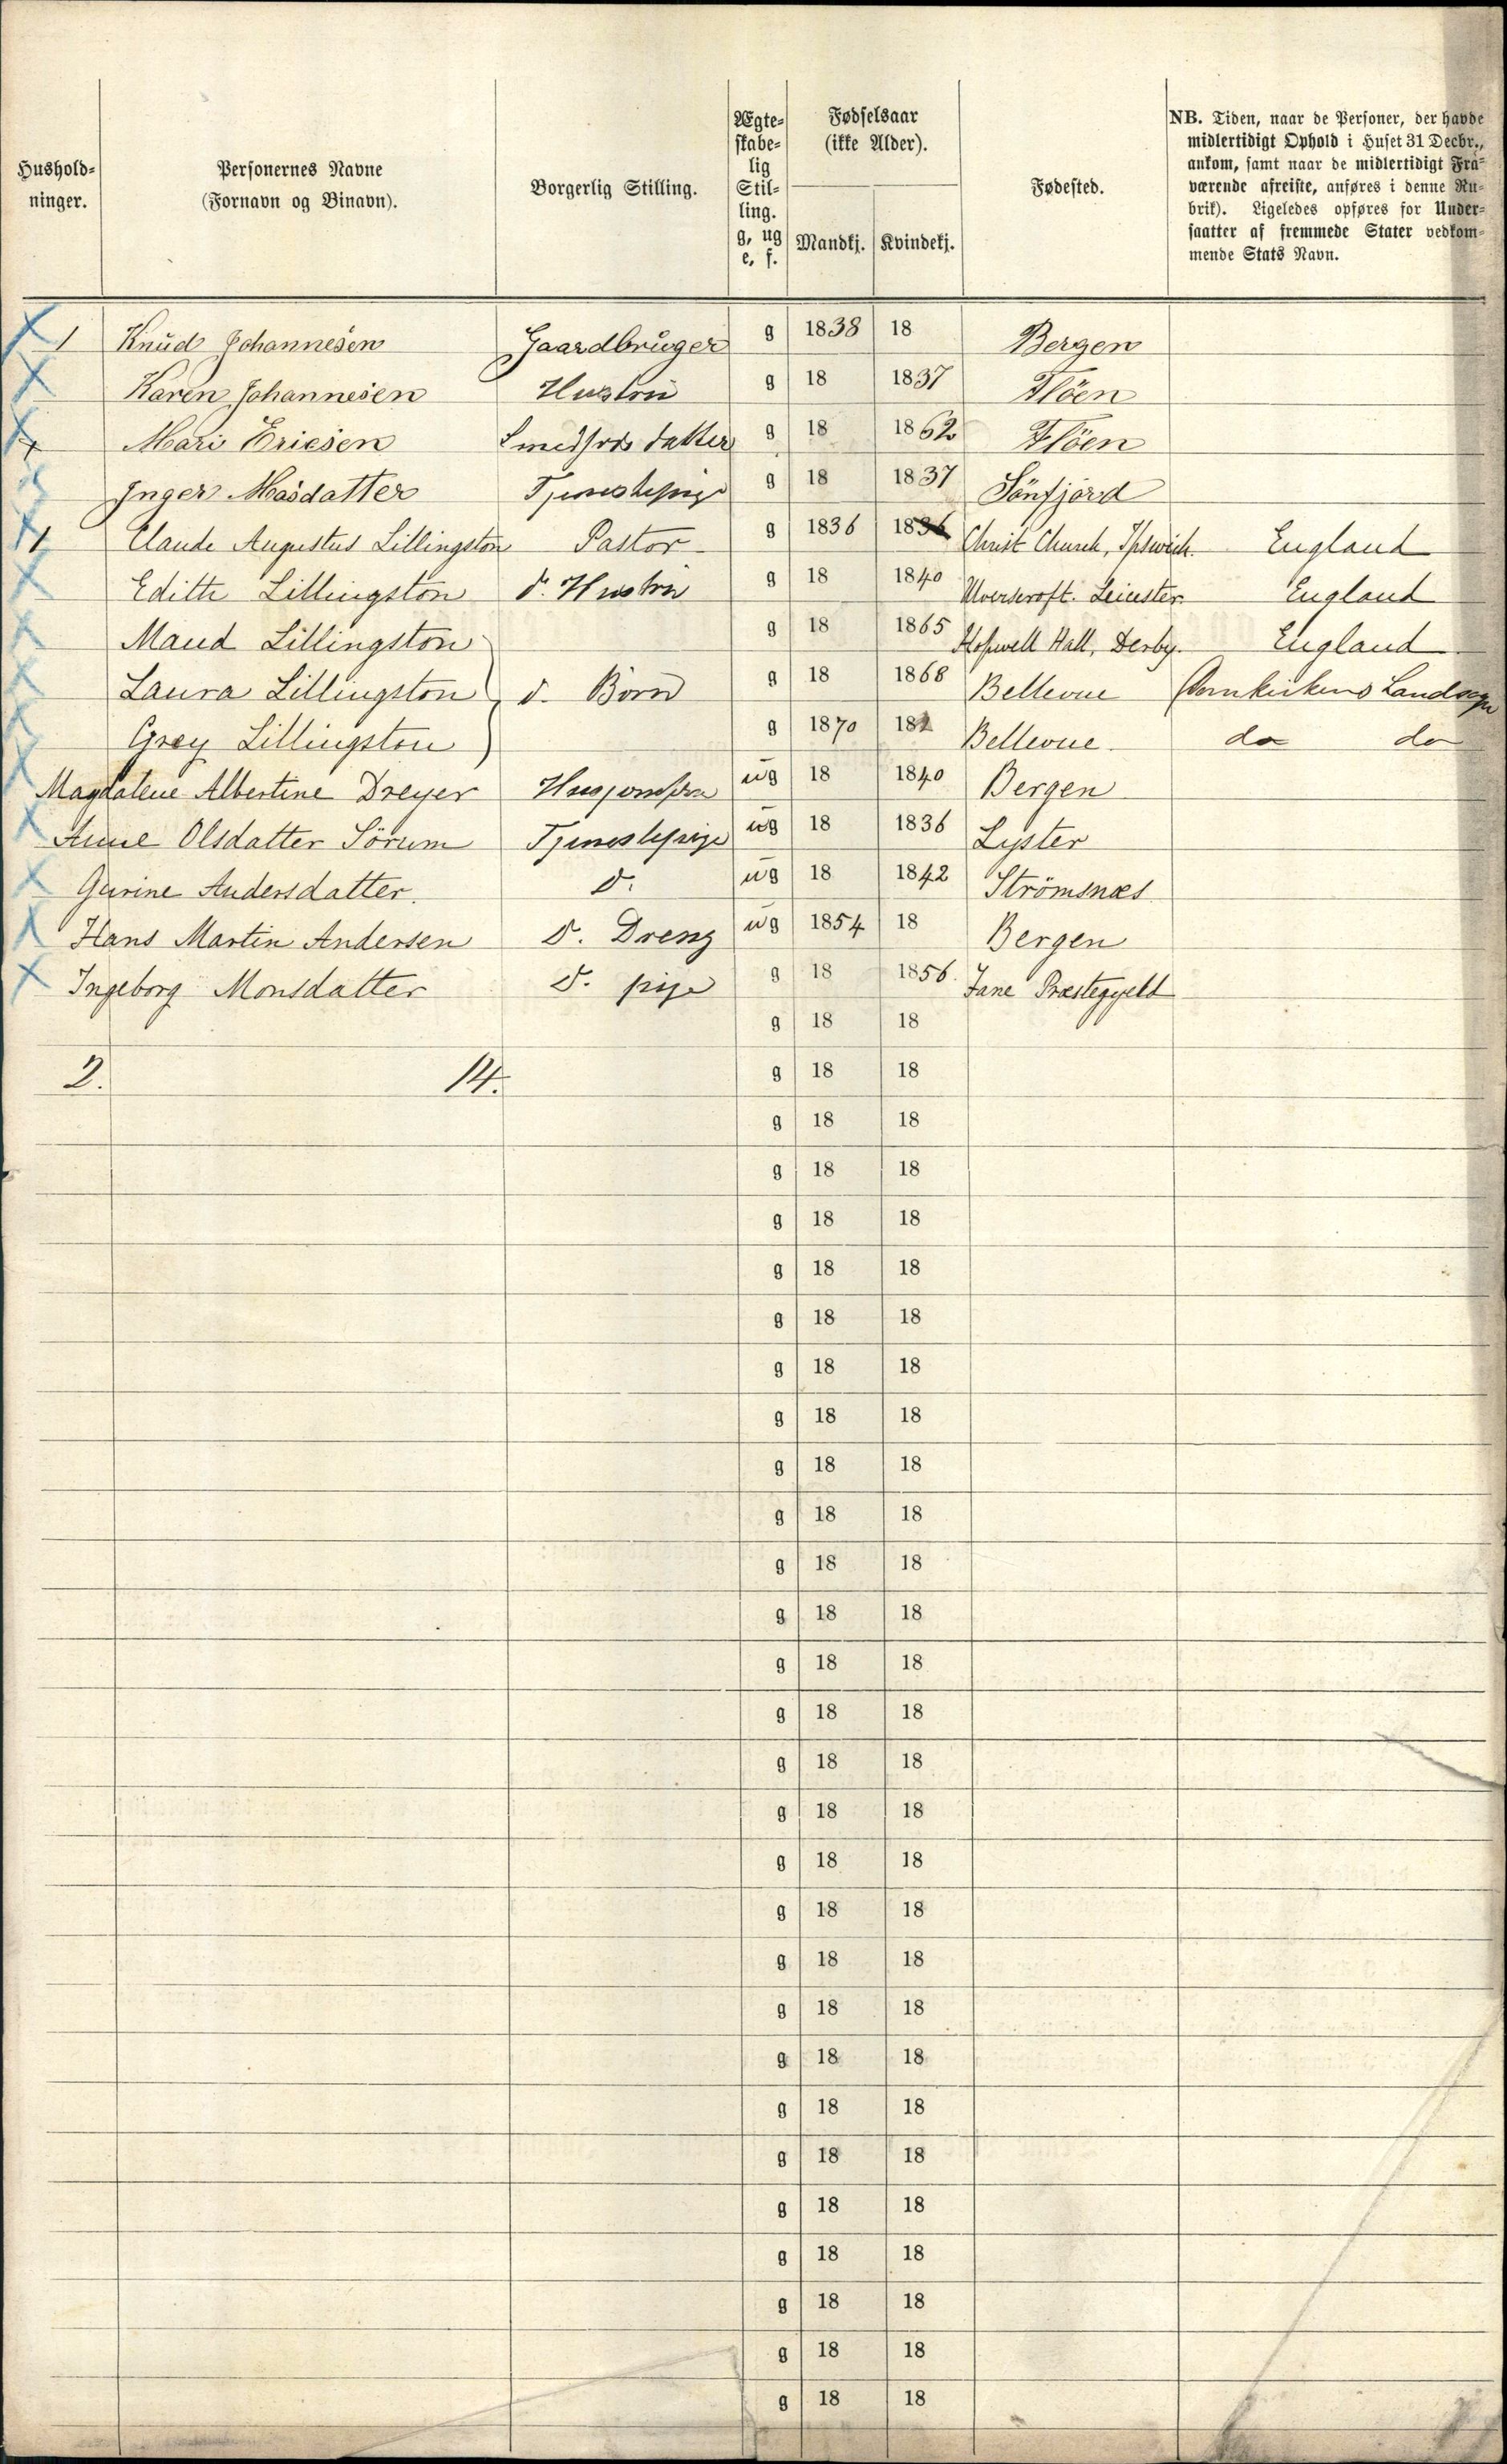 Hushold-
ninger.
Personernes Navne
(Fornavn og Binavn).
Borgerlig Stilling.
Ægte-
skabe-
lig
Stil-
ling.
g, ug
e, f.
Fødselsaar
(ikke Alder).
Mandkj. Kvindekj.
Fødested.
NB. Tiden, naar de Personer, der havde
midlertidigt Ophold i Huset 31 Decbr.,
ankom, samt naar de midlertidigt Fra-
værende afreiste, anføres i denne Ru-
brik). Ligeledes opføres for Under-
saatter af fremmede Stater vedkom-
mende Stats Navn.
1 Knud Johannesen Gaardbruger g 1838 18 Bergen
Karen Johannesen Hustru g 18 1837 Flöen
Mari Ericsen datter g 18 1862 Flöen
Inger Masdatter Tjenestepige g 18 1837 Sönfjord
1 Claude Augustus Lillingston Pastor g 1836 1836 Christ Church, Ipswich. England
Edith Lillingston d. Hustru g 18 1840 Ulverscroft. Leicester. England
Maud Lillingston g 18 1865 Hopwell Hall, Derby. England
Laura Lillingston d. Börn g 18 1868 Bellevue Domkirkens Landsogn
Grey Lillingston g 1870 18 Bellevue. do do
Magdalene Albertine Dreyer Husjomfru ug 18 1840 Bergen
Anne Olsdatter Sörum Tjenestepige ug 18 1836 Lyster
Gurine Andersdatter. d. ug 18 1842 Strömsnæs
Hans Martin Andersen d. Dreng ug 1854 18 Bergen
Ingeborg Monsdatter d. pige g 18 1856. Fane Præstegjeld
g 18 18
2. 14. g 18 18
g 18 18
g 18 18
g 18 18
g 18 18
g 18 18
g 18 18
g 18 18
g 18 18
g 18 18
g 18 18
g 18 18
g 18 18
g 18 18
g 18 18
g 18 18
g 18 18
g 18 18
g 18 18
g 18 18
g 18 18
g 18 18
g 18 18
g 18 18
g 18 18
g 18 18
g 18 18
g 18 18